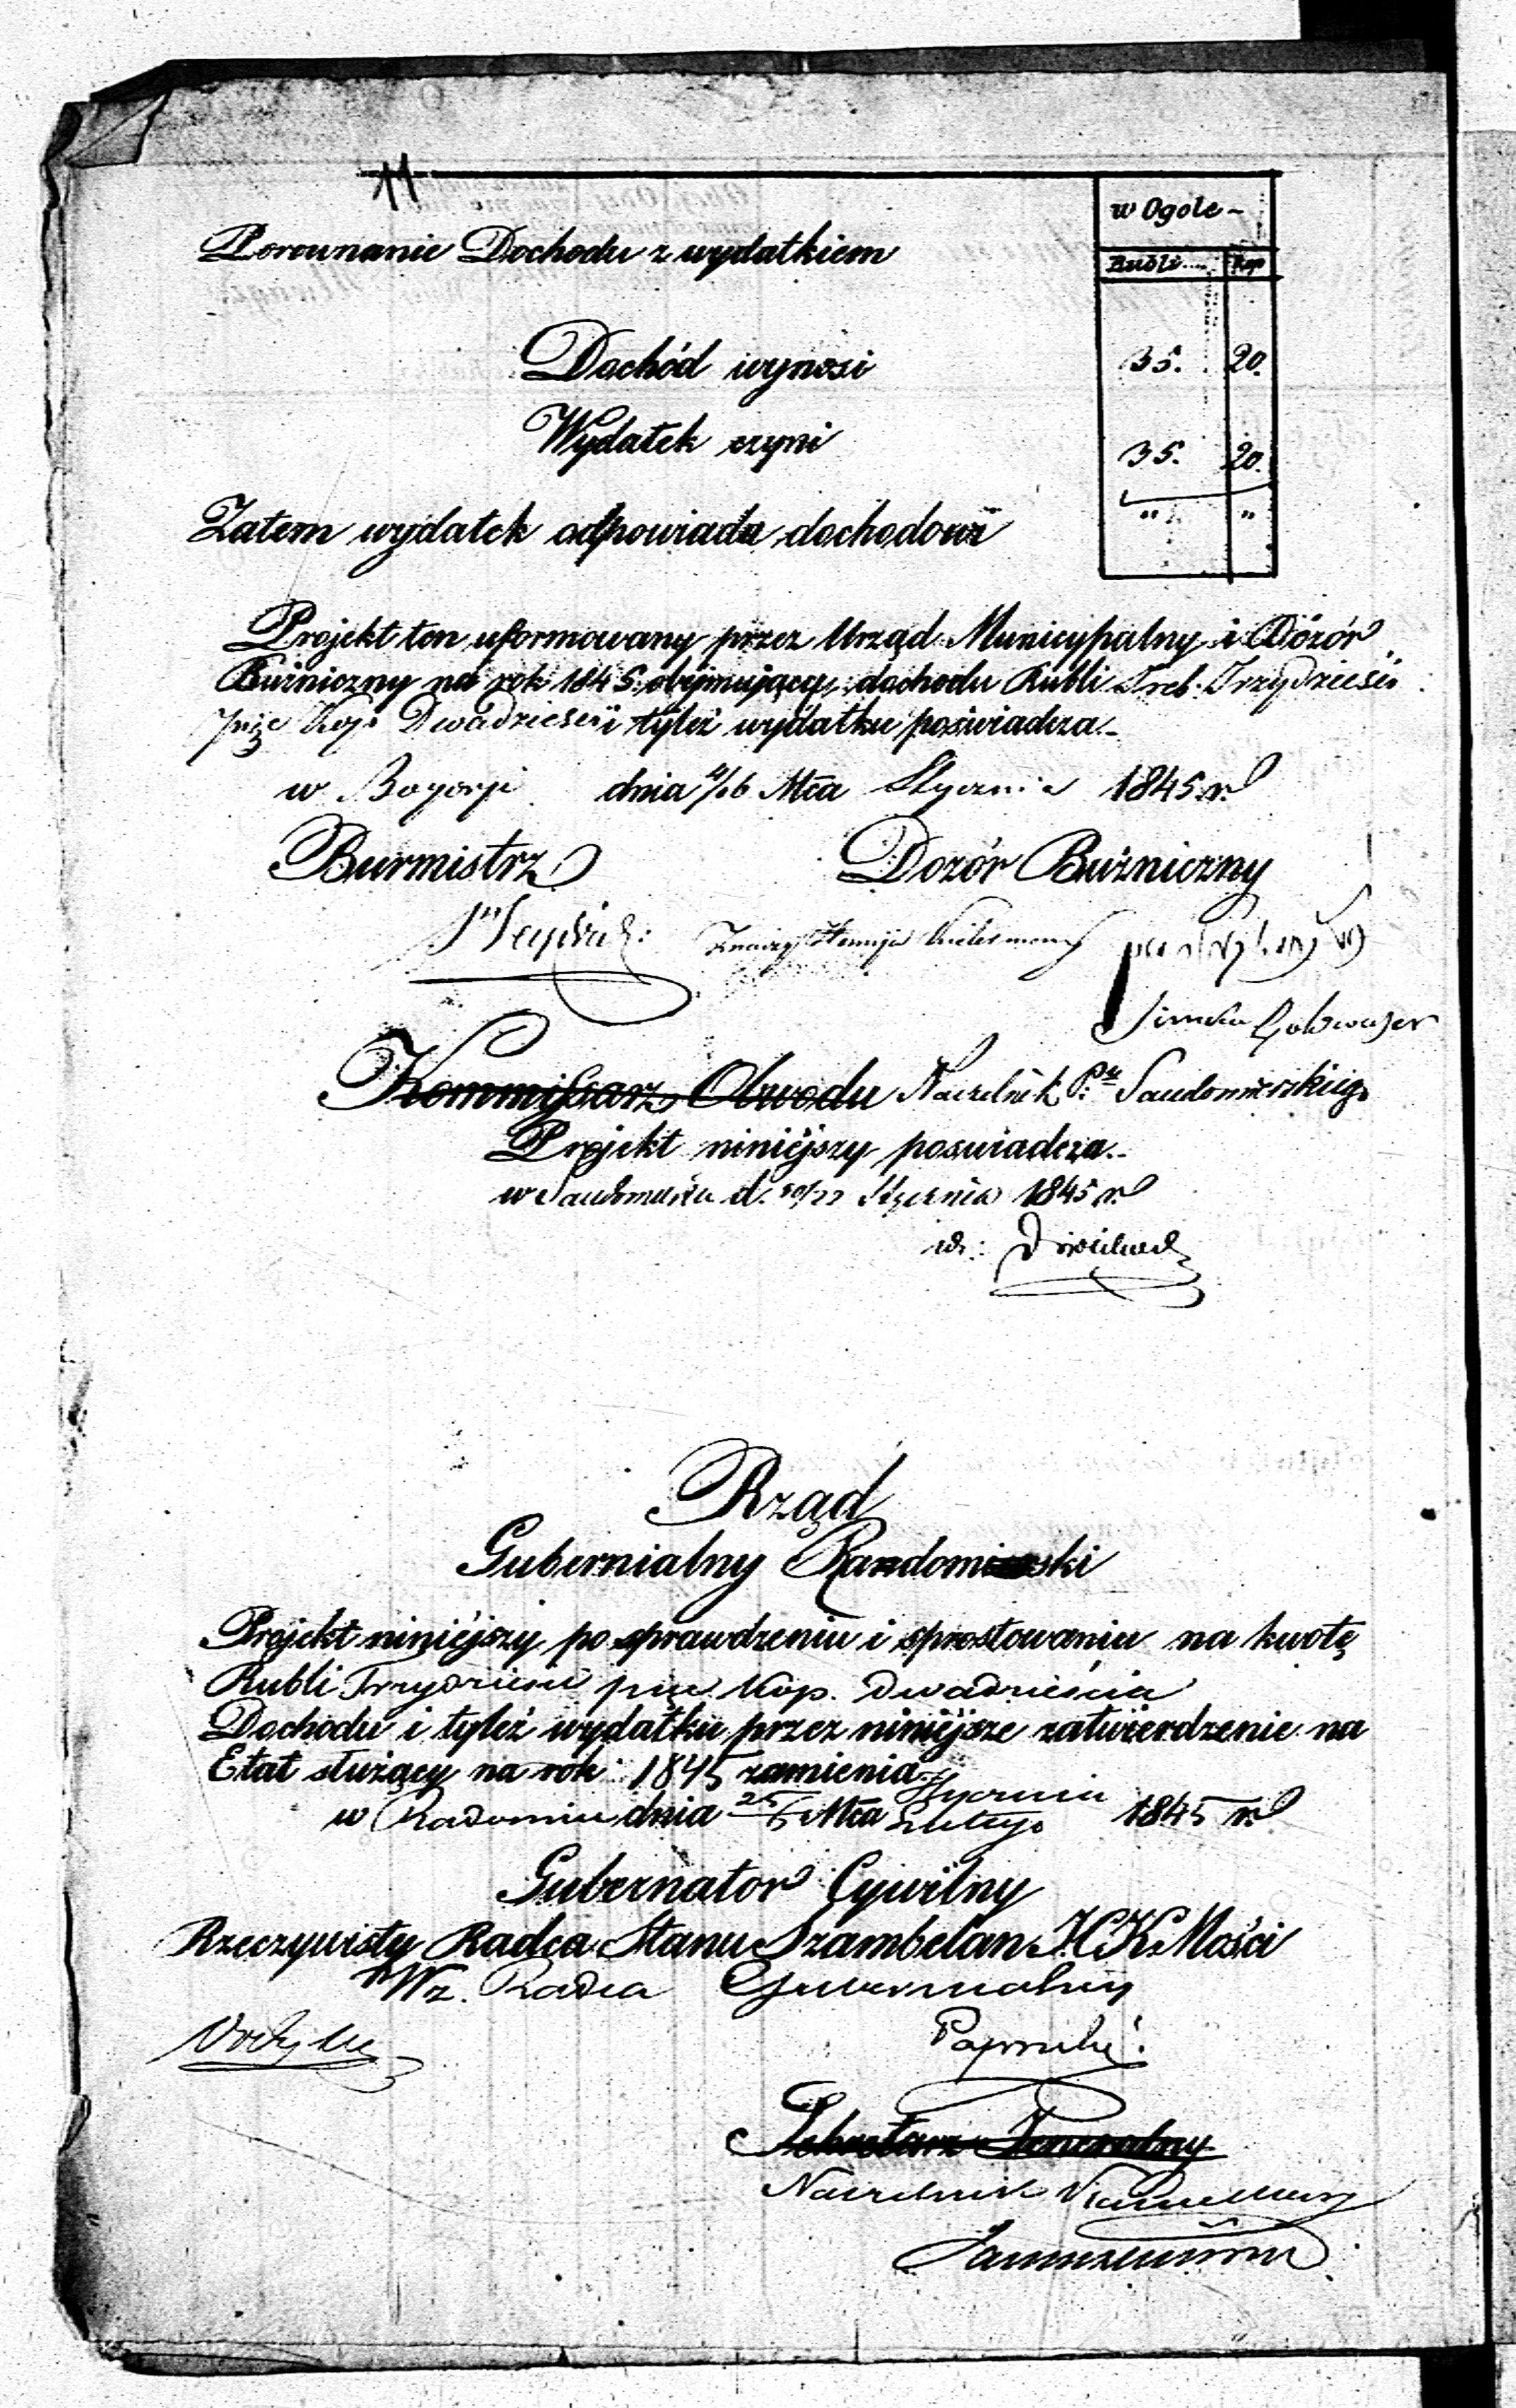 11
w Ogóle -
Porownanie Dochodu z wydatkiem
Rubli Kop
Dochód wynosi 35. 20.
Wydatek czyni 35. 20.
Zatem wydatek odpowiada dochodowi " "
Projekt ten uformowany przez Urząd Municypalny i Dozór
Bużniczny na rok 1845. obejmujący dochodu Rubli Sreb. Trzydzieści
pięć Kop Dwadzieścia i tyleż wydatku poświadcza.-
w Bogorji dnia 4/16 Mca Stycznia 1845 r.
Burmistrz Dozór Bużniczny
Znaczy
Kommissarz Obwodu Naczelnik Ptu Sandomirskiego
Projekt niniéjszy poswiadcza.-
w Sandomierzu d. 10/22 Stycznia 1845 r.
Rząd
Gubernialny Radomski
Projekt niniéjszy po sprawdzeniu i sprostowaniu na kwotę
Rubli Trzydzieści pięć Kop. Dwadzieścia
Dochodu i tyleż wydatku przez niniéjsze zatwierdzenie na
Etat służący na rok 1845 zamienia.-
Stycznia
w Radomiu dnia 25/6 Mca Lutego 1845 r.
Gubernator Cywilny
Rzeczywisty Radca Stanu Szambelan J.C.K. Mości
Wz. Radca Gubernialny
Paprocki.
Sekretarz Jeneralny
Naczelnik Kancellaryi